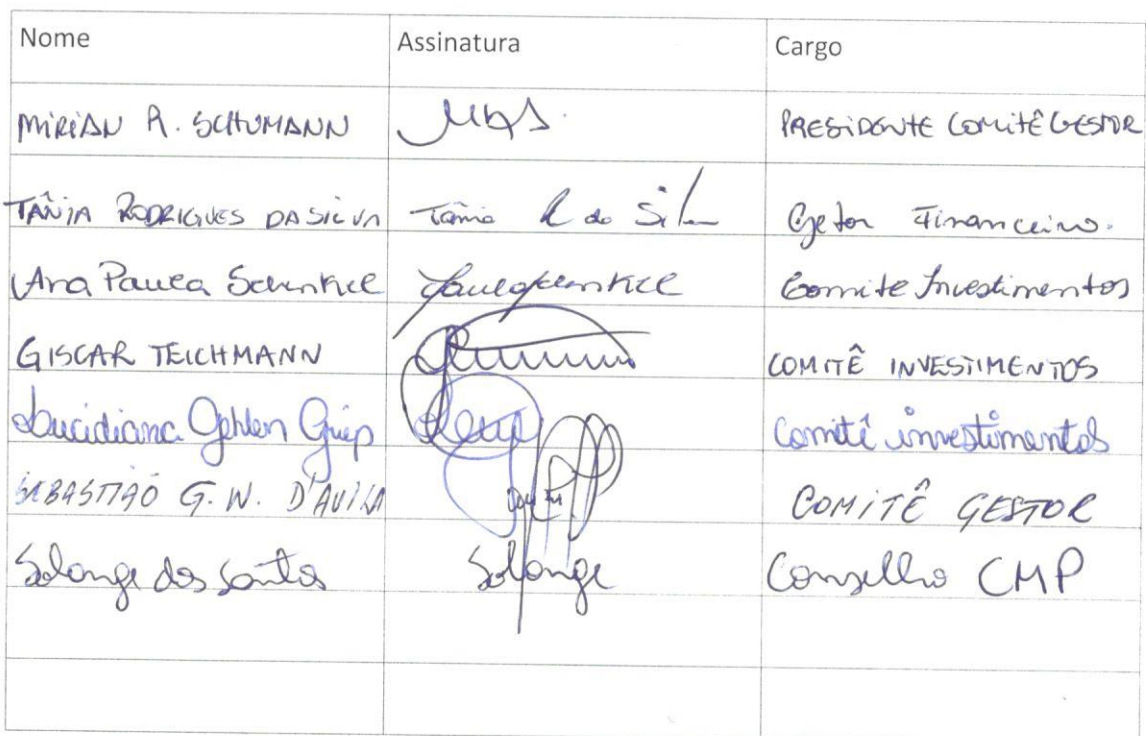 Nome Assinatura Cargo
MIRIAN R. SCHUMANN MRS. PRESIDENTE COMITÊ GESTOR
TÂNIA RODRIGUES DA SILVA Tânia R da Silva Gestor Financeiro.
Ana Paula Schenkel Comite Investimentos
GISCAR TEICHMANN COMITÊ INVESTIMENTOS
Lucidiana Gehlen Griep Comitê investimentos
SEBASTIÃO G. W. D'AVILA COMITÊ GESTOR
Solange dos Santos Solange Conselho CMP